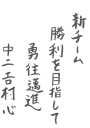 新チーム
勝利を目指して
勇往邁進
中二 吉村心